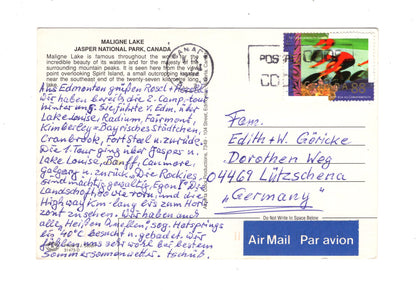 MALIGNE LAKE
JASPER NATIONAL PARK, CANADA
Maligne Lake is famous throughout the world for the
incredible beauty of its waters and for the majesty of the
surrounding mountain peaks. It is seen here from the
points overlooking Spirit Island, a small outcropping
near the southeast end of the twenty-seven kilometre long
Aus Edmonton grüßen Rosel +
Wir haben bereits die 2. Camp.tour
hinter uns. Sie führte v. Edm. über
Lake Louise, Radium, Fairmont,
Kimberley = Bayrisches Städtchen,
Cranbrook, Fort Steel u. zurück.
Die 1. Tour ging über Jasper n.
Lake Louise, Banff, Canmore,
Calgary u. zurück. Die Rockies
sind mächtig gewaltig Egon! Die
Landschaft
Highway km-lang bis zum Hori-
zont zu sehen. Wir haben auch
alle "Heißen Quellen" seg. Hotsprings
bis 40°C besucht u. gebadet. Wir
fühlen uns sehr wohl bei bestem
Sommersonnenwetter. Tschüß.
CANADA
POSTAL CODE
88
Fam.
Edith + W. Göricke
Dorothen Weg
04469 Lützschena
"Germany"
Do Not Write In Space Below
Air Mail Par avion